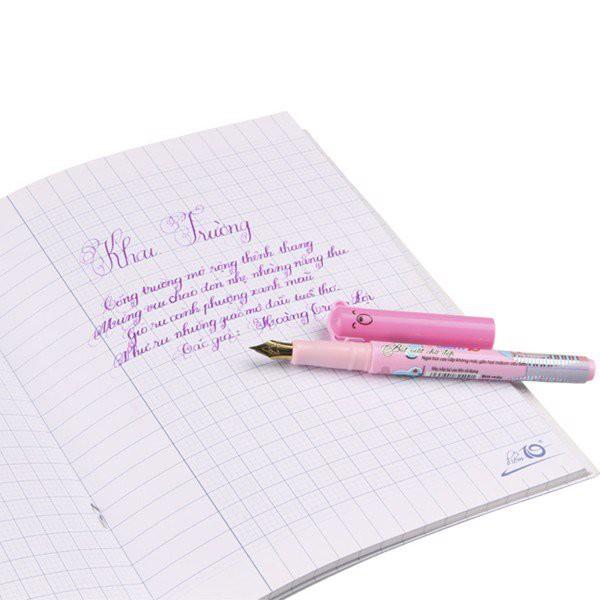 Khai Trường
Cổng trường mở rộng thênh thang
Mừng vui chào đón nhẹ nhàng nắng thu
Gió ru cành phượng xanh màu
Như ru những giấc mơ đầu tuổi thơ.
Tác giả: Hoàng Trọng Lợi
Bút viết chữ đẹp
điểm 10